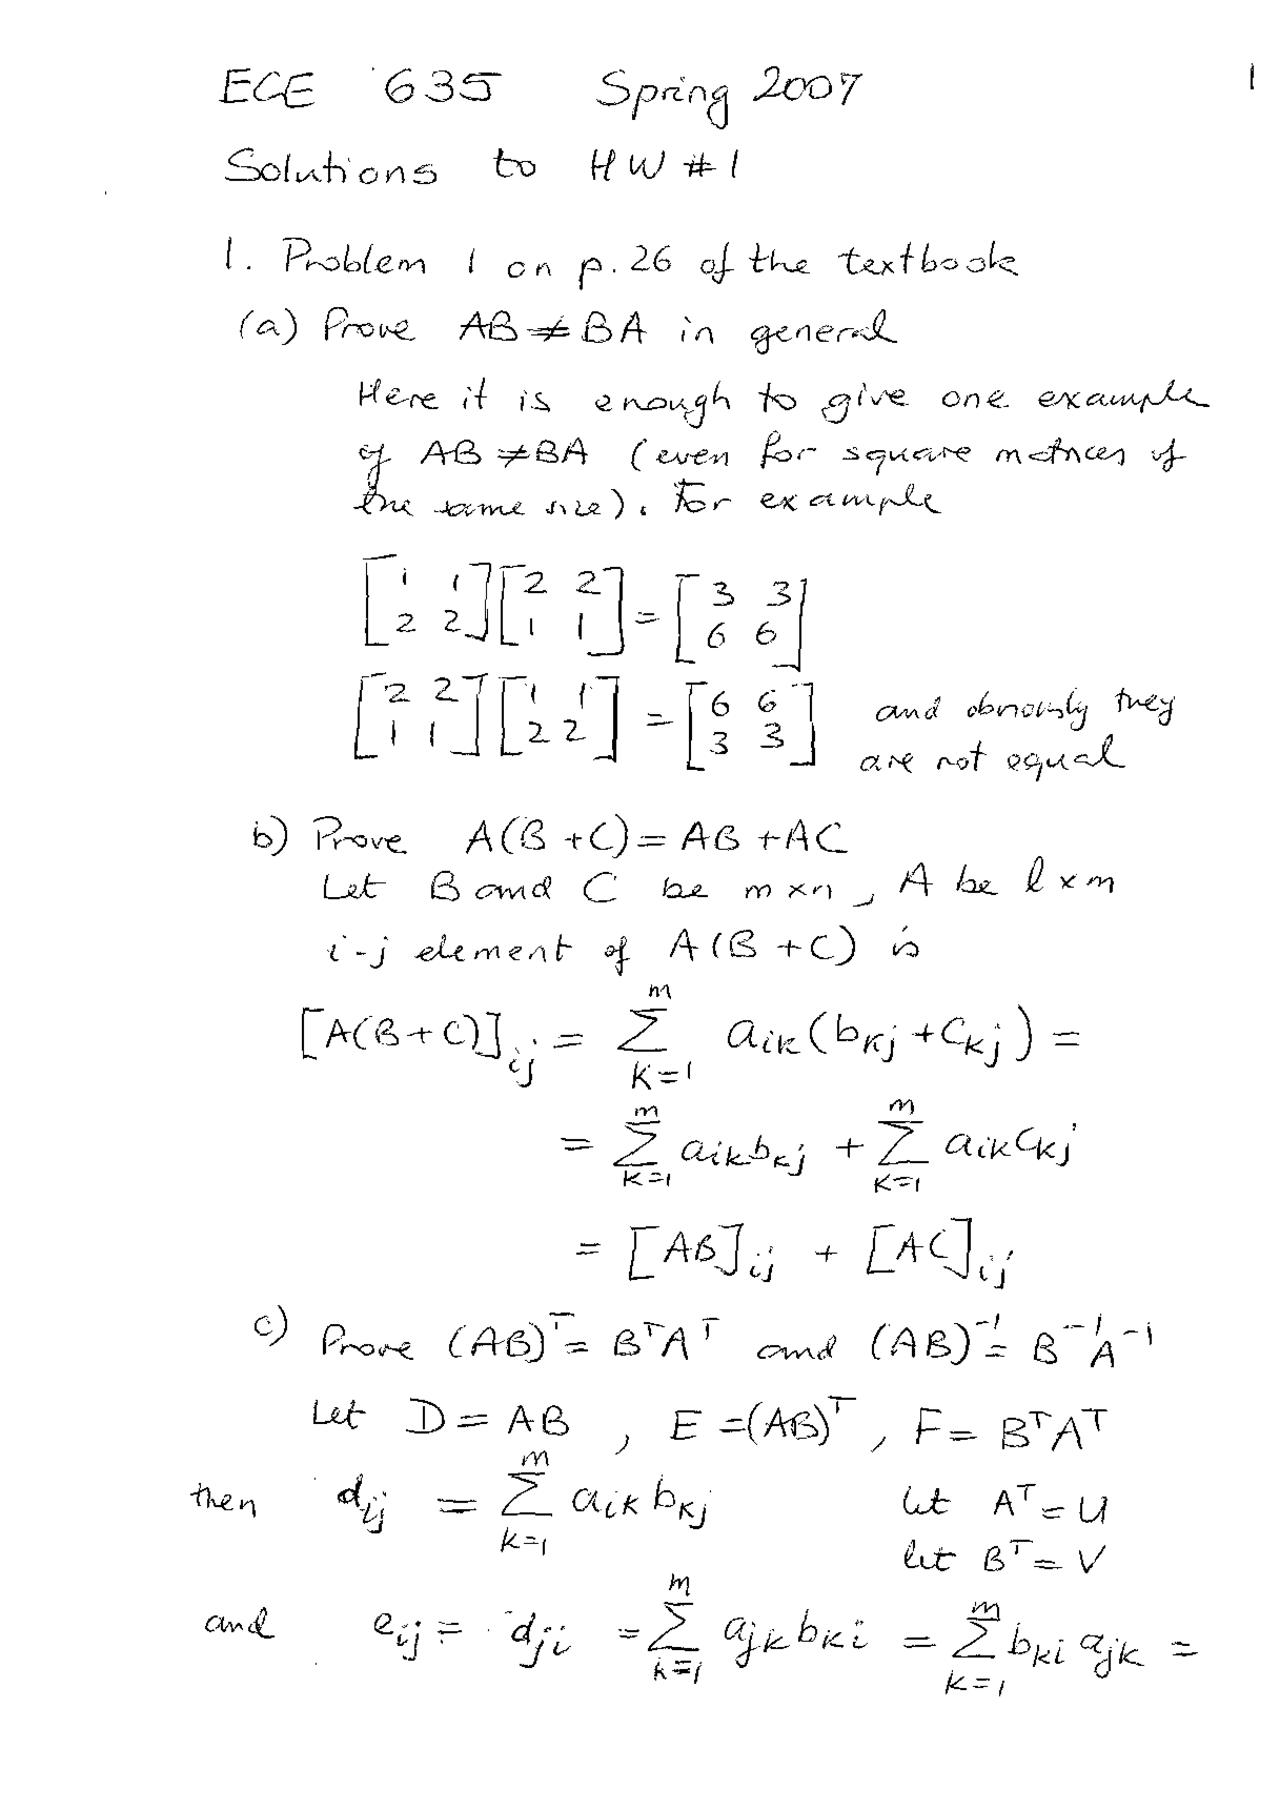 1
ECE 635 Spring 2007
Solutions to HW #1
1. Problem 1 on p. 26 of the textbook
(a) Prove AB ≠ BA in general
Here it is enough to give one example
of AB ≠ BA (even for square matrices of
the same size). For example
[1 1; 2 2] [2 2; 1 1] = [3 3; 6 6]
[2 2; 1 1] [1 1; 2 2] = [6 6; 3 3] and obviously they
are not equal
b) Prove A(B+C) = AB + AC
Let B and C be m×n, A be l×m
i-j element of A(B+C) is
[A(B+C)]ij = Σ_{k=1}^{m} aik(bkj + ckj) =
= Σ_{k=1}^{m} aik bkj + Σ_{k=1}^{m} aik ckj
= [AB]ij + [AC]ij
c) Prove (AB)ᵀ = BᵀAᵀ and (AB)⁻¹ = B⁻¹A⁻¹
Let D = AB, E = (AB)ᵀ, F = BᵀAᵀ
then dij = Σ_{k=1}^{m} aik bkj let Aᵀ = U
let Bᵀ = V
and eij = dji = Σ_{k=1}^{m} ajk bki = Σ_{k=1}^{m} bki ajk =